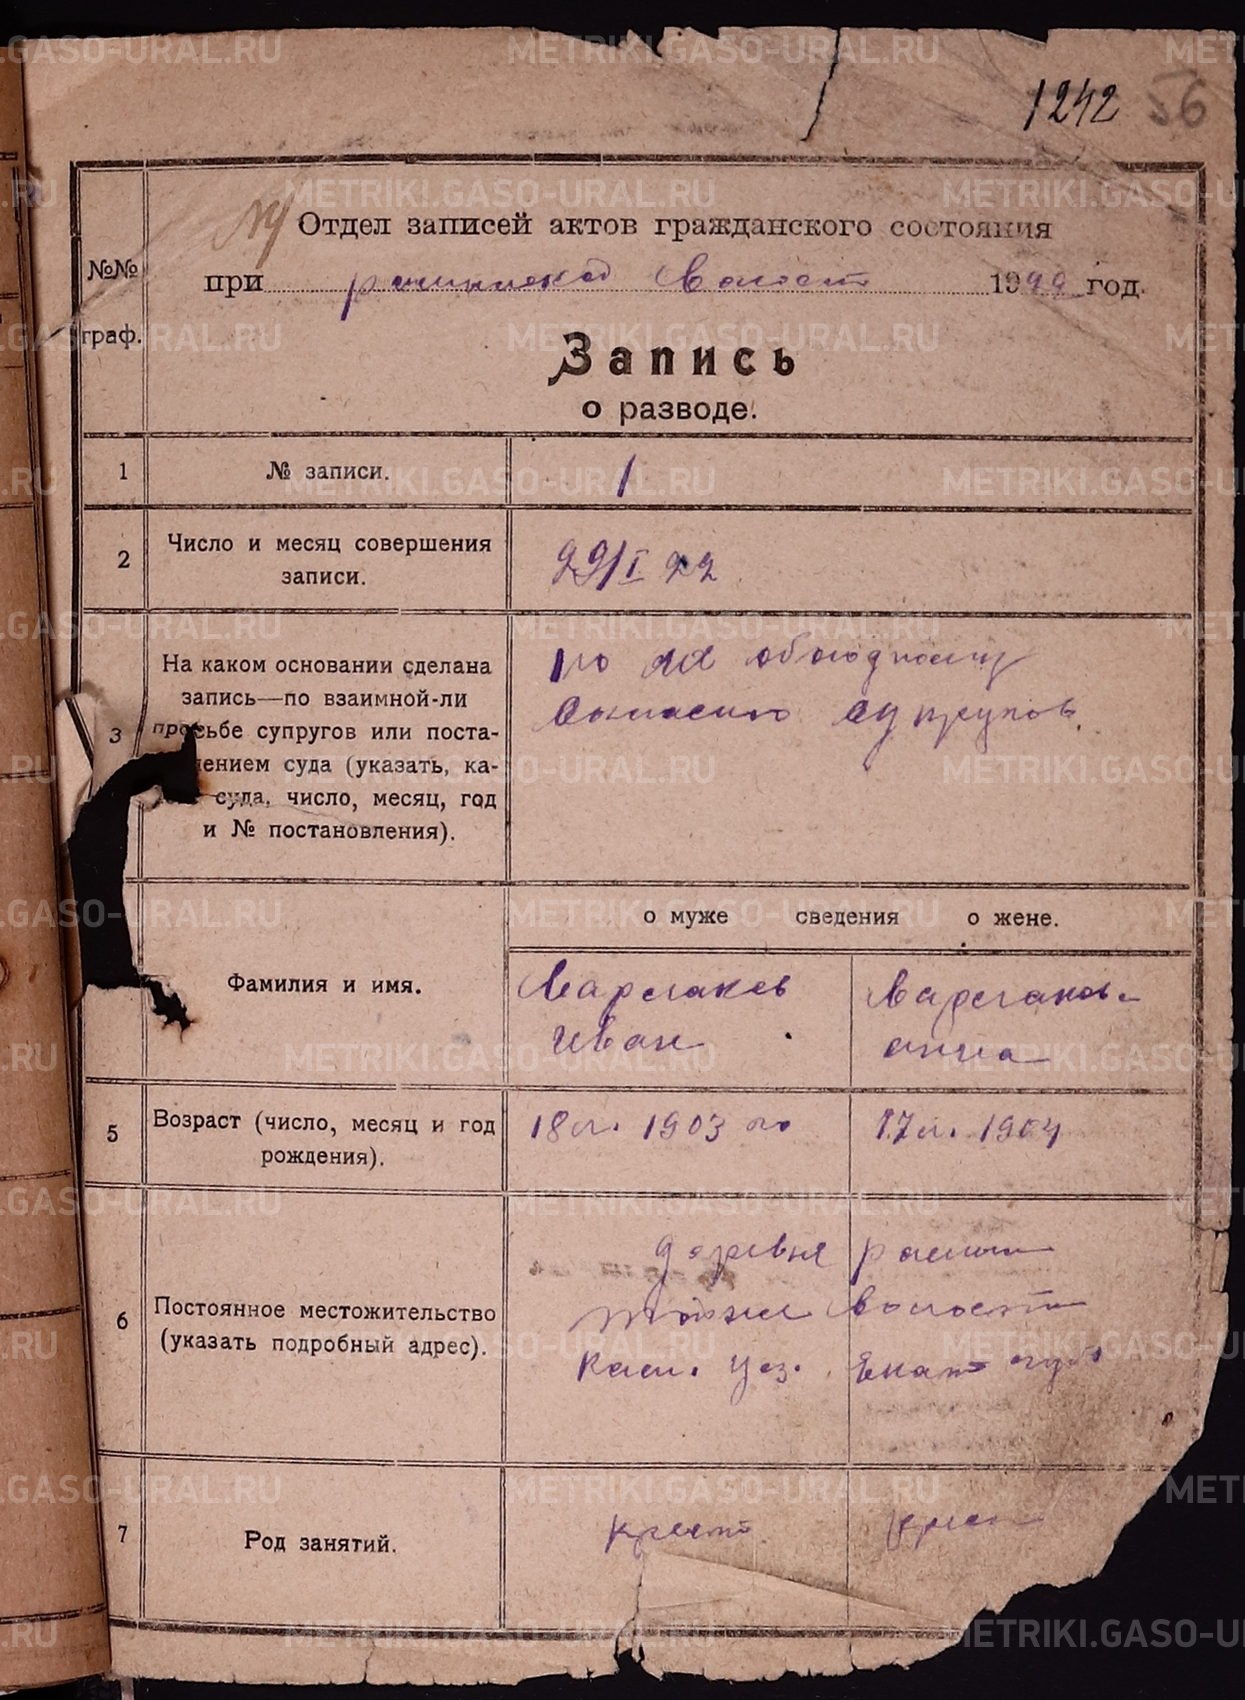 1242 56
Отдел записей актов гражданского состояния
№№
при волост 1922 год.
граф.
Запись
о разводе.
1 № записи. 1
2 Число и месяц совершения записи. 29/I 22
3 На каком основании сделана
запись—по взаимной-ли
просьбе супругов или поста-
лением суда (указать, ка-
суда, число, месяц, год
и № постановления).
по их обоюдному
согласию супругов.
о муже сведения о жене.
Фамилия и имя.
Иван
анна
5 Возраст (число, месяц и год
рождения).
18 л. 1903 го
17 л. 1904
6 Постоянное местожительство
(указать подробный адрес).
деревня
тойже волости
уез. Екат губ
7 Род занятий. крест крес
METRIKI.GASO-URAL.RU